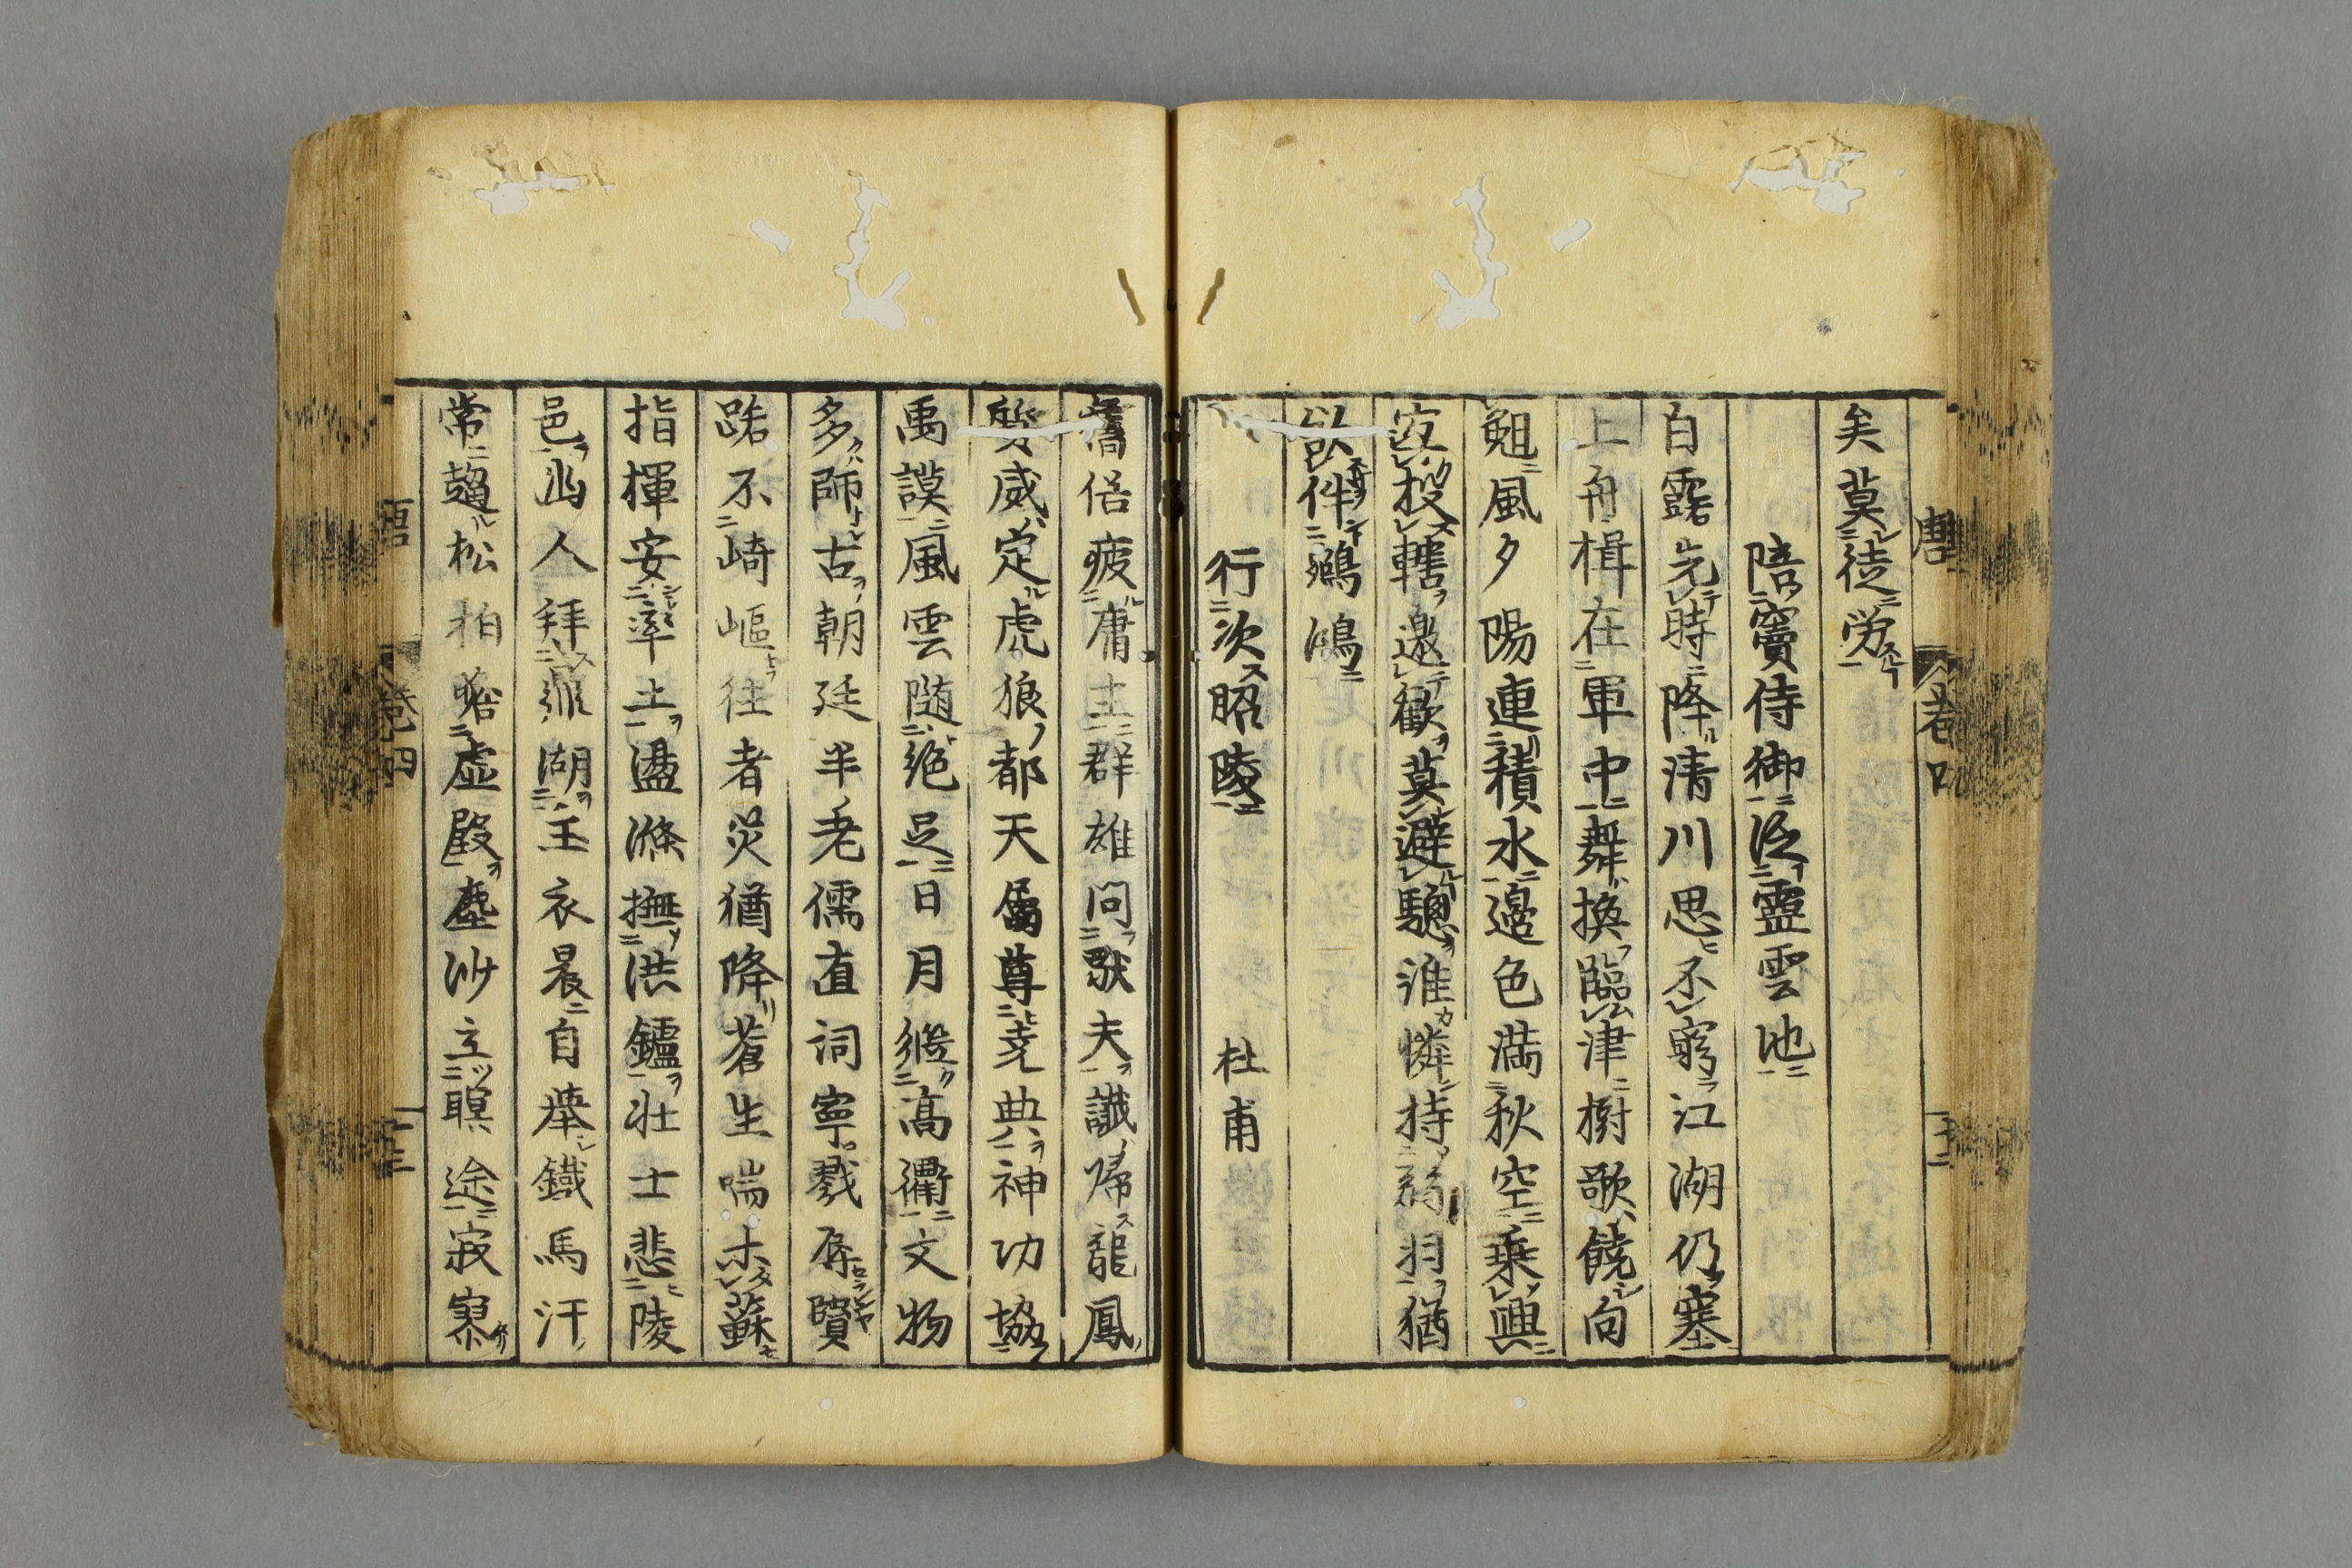 唐 卷四
矣莫徒労
陪竇侍御泛靈雲池
白露先時降清川思不窮江湖仍塞
上舟楫在軍中舞換臨津樹歌饒向
晩風夕陽連積水邉色満秋空乗興
冝投轄邀歓莫避驄誰憐持弱羽猶
欲伴鵷鴻
行次昭陵 杜甫
舊俗疲庸主群雄問獨夫讖歸龍鳳
質威定虎狼都天属尊尭典神功協
禹謨風雲随絶足日月継高衢文物
多師古朝廷半老儒直詞寧戮辱賢
路不崎嶇往者災猶降蒼生喘未蘇
指揮安率土盪滌撫洪鑪壮士悲陵
邑幽人拜鼎湖玉衣晨自舉鐵馬汗
常趨松柏瞻虚殿塵沙立暝途寂寥
卷四 十三